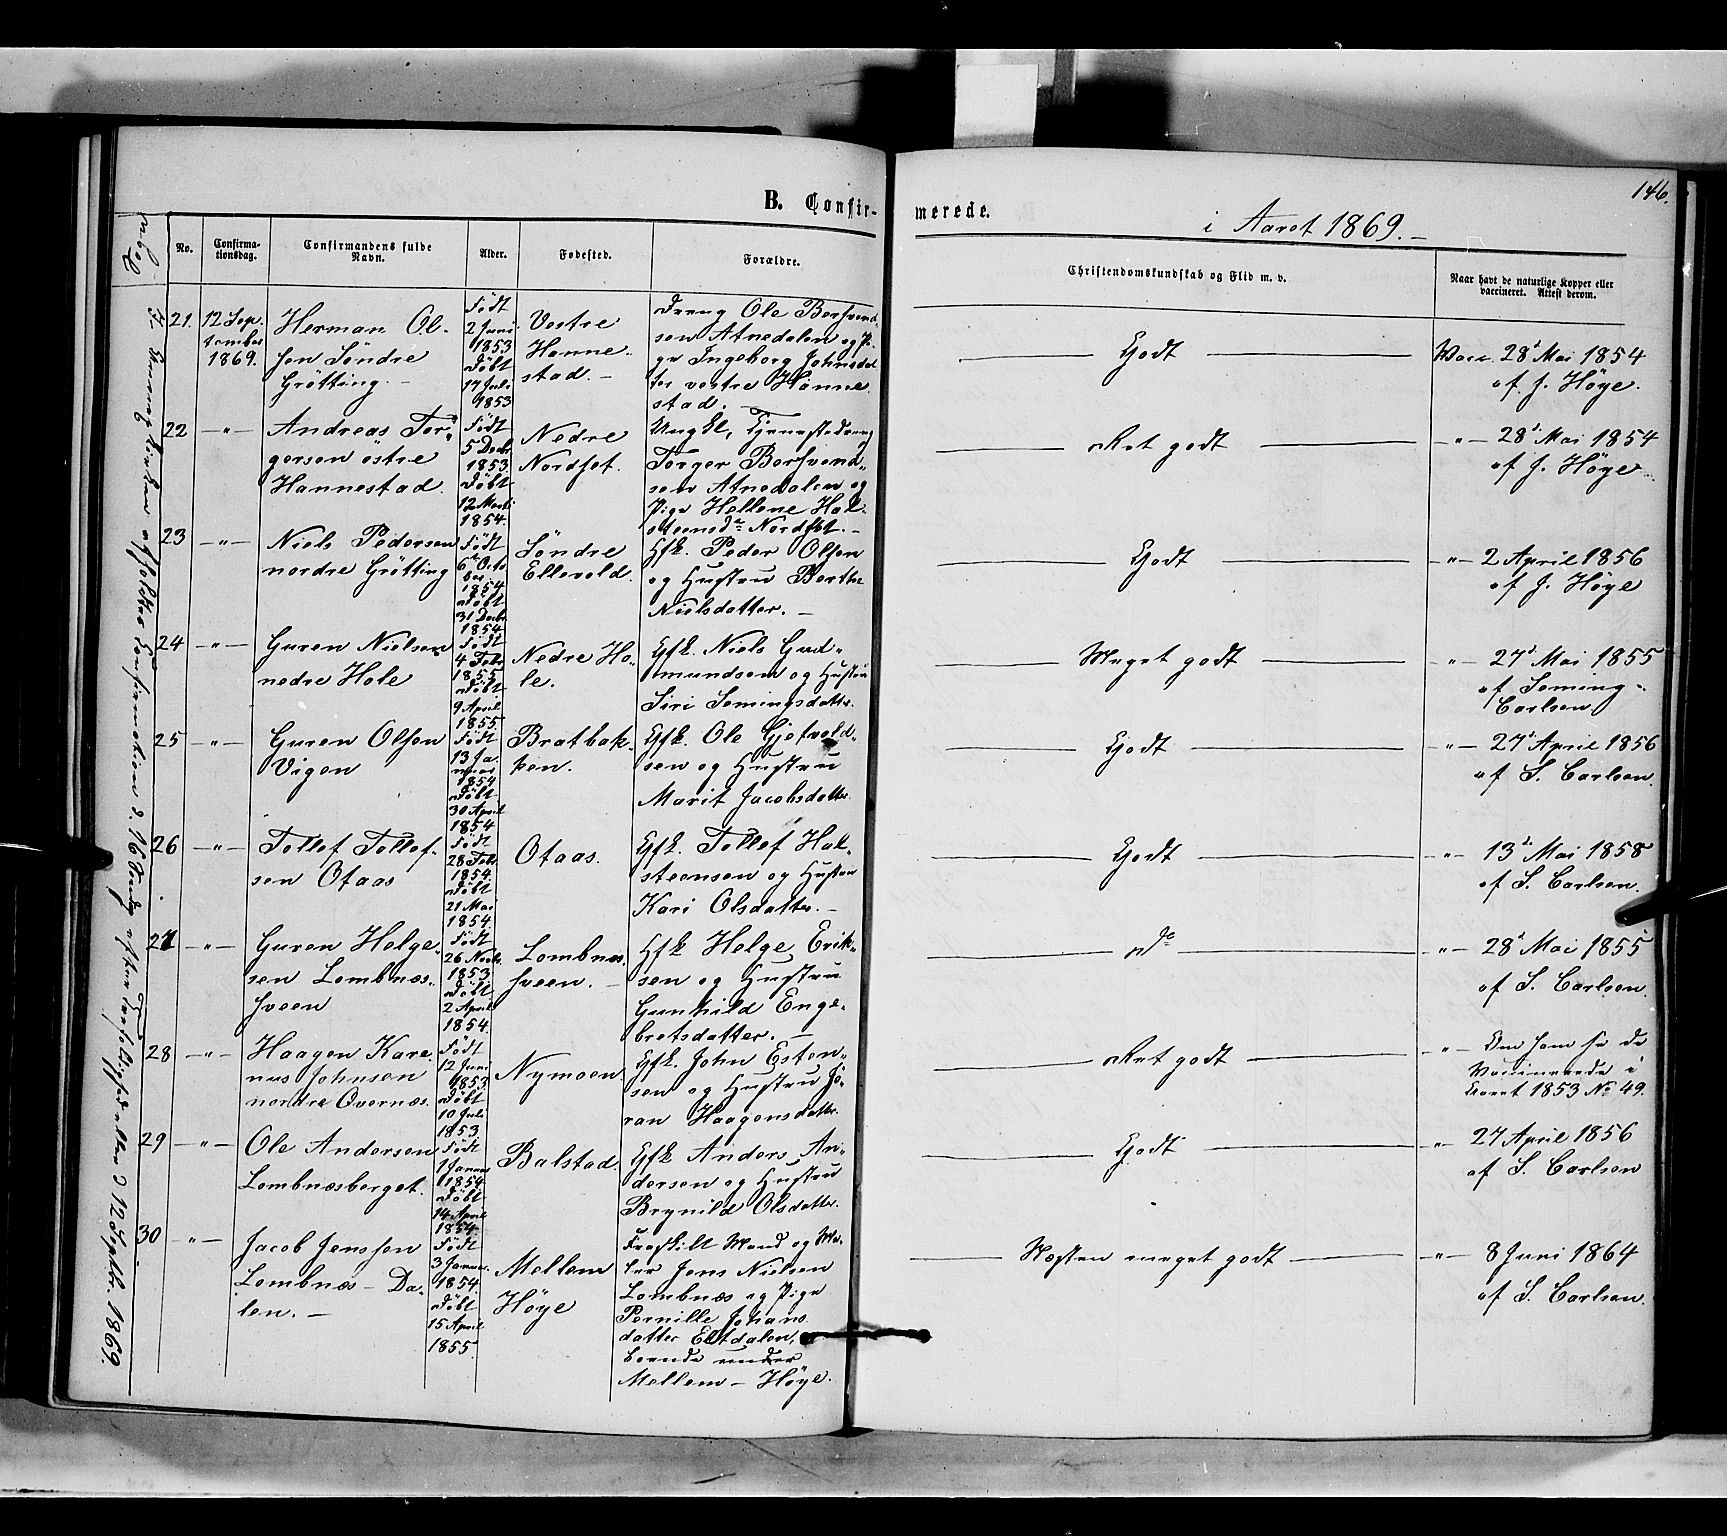 146.
B. Confir-
merede.
i Aaret 1869. –
No.
Confirma-
tionsdag.
Confirmandens fulde
Navn.
Alder.
Fødested.
Forældre.
Christendomskundskab og Flid m. v.
Naar havt de naturlige Kopper eller
vaccineret. Attest derom.
21.
12 Sep-
tember
1869.
Herman Ol-
sen Söndre
Grötting. –
Födt
2 Juni
1853
Döbt
17 Juli
1853
Vestre
Hanne-
stad. –
Dreng Ole Bersvend-
sen Atnedalen og Pi-
ge Ingeborg Johnsdat
ter vestre Hanne
stad. –
Godt
Vacc. 28de Mai 1854
af J. Höye.
22
– " –
Andreas Tor-
gersen östre
Hannestad.
Födt
5 Decbr
1853.
Döbt
12 Marts
1854.
Nedre
Nordset.
Ungkl, Tjenestedreng
Torger Bersvend-
sen Atnedalen og
Pige Hellene Hal-
steensdr Nordset. –
Ret godt
– " – 28de Mai 1854
af J. Höye
23
– " –
Niels Pedersen
nordre Grötting
Födt
6te Octo
ber
1854
Döbt
31 Decbr
1854
Söndre
Ellevold.
Gfk. Peder Olsen
og Hustru Berthe
Nielsdatter. –
Godt
– " – 2 April 1856
af J. Höye
24
– " –
Guren Nielsen
nedre Hole
Födt
4 Febr
1855
Döbt
9 April
1855.
Nedre Ho-
le.
Gfk. Niels Gud-
mundsen og Hustru
Siri Semingsdatter.
Meget godt
– " – 27de Mai 1855
af Seming
Carlsen
25
– " –
Guren Olsen
Vigen
Födt
13 Ja-
nuar
1854
Döbt
30 April
1854
Bratbak-
ken.
Gfk. Ole Gjetvold-
sen og Hustru
Marit Jacobsdatter
Godt
– " – 27de April 1856
af S. Carlsen.
26
– " –
Tollef Tollef-
sen Otaas
Födt
28 Febr
1854.
Döbt
21 Mai
1854.
Otaas.
Gfk. Tollef Hal-
steensen og Hustru
Kari Olsdatter. –
Godt
– " – 13de Mai 1858
af S. Carlsen.
27
– " –
Guren Helge-
sen Lombnæs-
sveen
Födt
26 Novbr.
1853
Döbt
2 April
1854.
Lombnæs
sveen. –
Gfk Helge Erik-
sen og Hustru
Gunhild Enge-
bretsdatter. –
do
– " – 28de Mai 1855
af S. Carlsen.
28
– " –
Haagen Kare-
nus Johnsen
nordre Overnæs.
Födt
12 Juni
1853.
Döbt
10 Juli
1853
Nymoen
Gfk. John Esten-
sen og Hustru Jö-
ran Haagensdatter.
Ret godt
– " – Om ham se de
Vaccinerede i
Aaret 1853 No 49.
29
– " –
Ole Andersen
Lombnæsberget.
Födt
1 Januar
1854
Döbt
14 April
1854.
Balstad
Gfk Anders An-
dersen og Hustru
Brynild Olsdatter.
Godt
– " – 27 April 1856
af S. Carlsen
30
– " –
Jacob Jenssen
Lombnæs – Da-
len. –
Födt
3 Januar.
1854.
Döbt
15 April
1855.
Mellem
Höye
Fraskilt Mand og Ma-
ler Jens Nielsen
Lombnæs og Pige
Pernille Johans
datter Elstdalen,
boende under
Mellem – Höye.
Næsten meget godt
– " – 8 Juni 1864
af S. Carlsen.